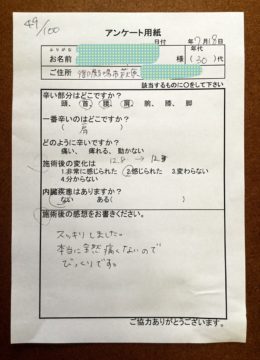 49/100
アンケート用紙
日付 7月9日
ふりがな
お名前 様
年代
(30)代
ご住所 御殿場市萩原
該当するものに○をして下さい
辛い部分はどこですか?
頭、首、腰、肩、腕、膝、脚
一番辛いのはどこですか?
( 肩 )
どのように辛いですか?
痛い、 痺れる、 動かない
施術後の変化は
1.非常に感じられた 2.感じられた 3.変わらない
4.分からない
内臓疾患はありますか?
ない ある( )
施術後の感想をお書きください。
スッキリしました。
本当に全然痛くないので
びっくりです。
ご協力ありがとうございます。